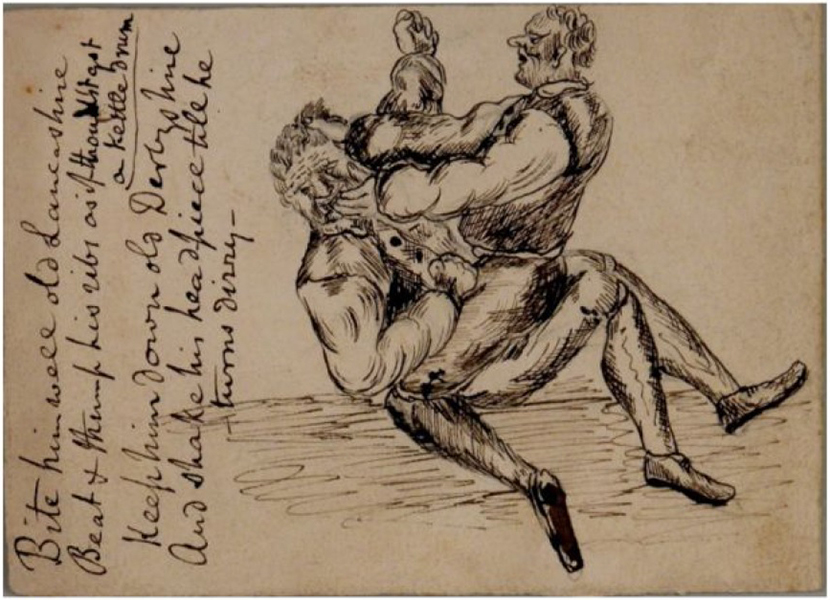 Bite him well old Lancashire
Beat & thump his ribs as if thou hadst got
a kettle drum
Keep him down old Derbyshire
And shake his headpiece till he
turns dizzy –